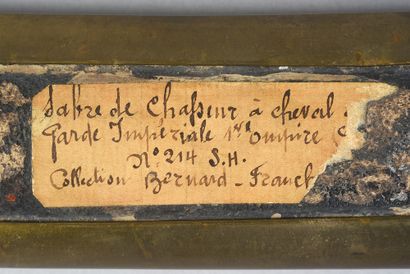 Sabre de Chasseur à cheval
Garde Impériale 1er Empire
N° 214 S.H.
Collection Bernard-Franck